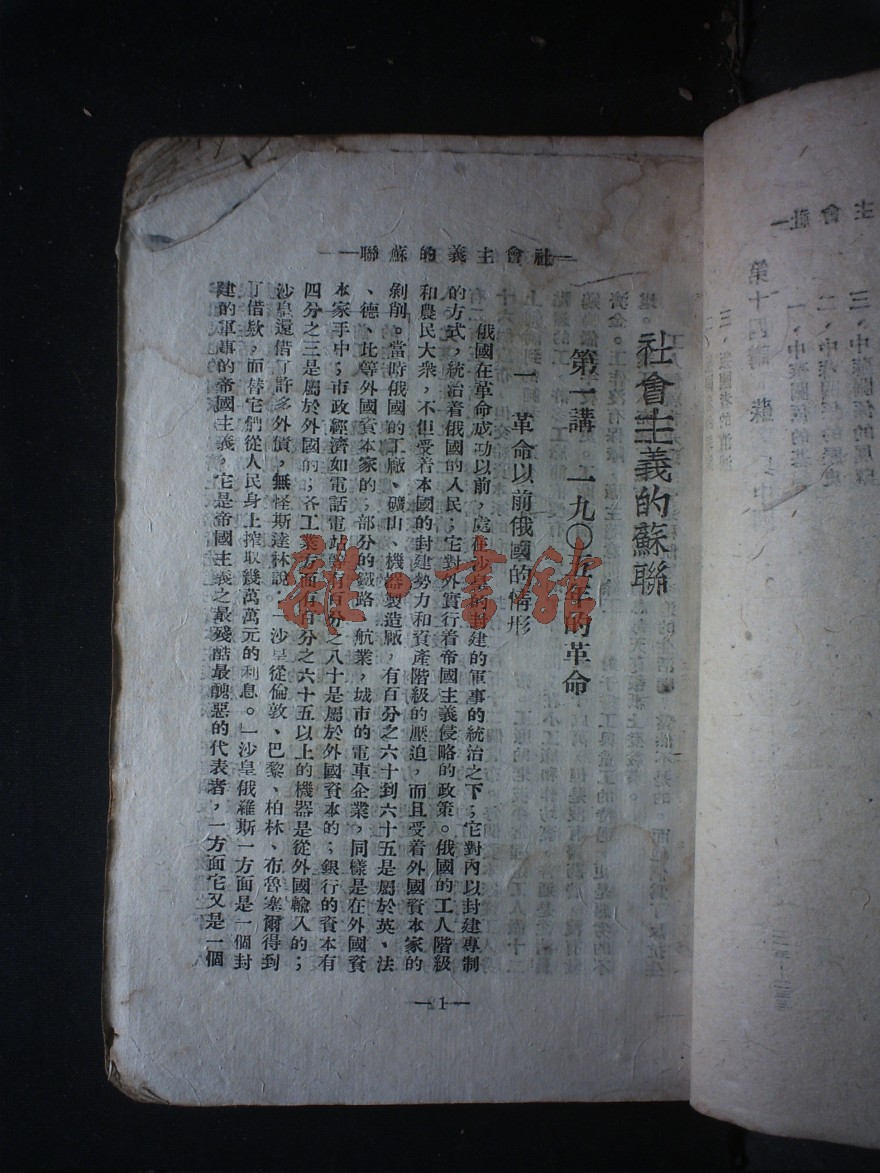 —社會主義的蘇聯—
社會主義的蘇聯
第一講　一九〇五年的革命
一　革命以前俄國的情形
俄國在革命成功以前，處在沙皇的封建的軍事的統治之下；它對內以封建專制
的方式，統治着俄國的人民；它對外實行着帝國主義侵略的政策。俄國的工人階級
和農民大衆，不但受着本國的封建勢力和資產階級的壓迫，而且受着外國資本家的
剝削。當時俄國的工廠、礦山、機器製造廠，有百分之六十到六十五是屬於英、法
、德、比等外國資本家的；部分的鐵路，航業，城市的電車企業，同樣是在外國資
本家手中；市政經濟如電話電站等有百分之八十是屬於外國資本的；銀行的資本有
四分之三是屬於外國的；各工業方面有百分之六十五以上的機器是從外國輸入的；
沙皇還借了許多外債，無怪斯達林說：「沙皇從倫敦、巴黎、柏林、布魯塞爾得到
了借欵，而替它們從人民身上搾取幾萬萬元的利息。」沙皇俄羅斯一方面是一個封
建的軍事的帝國主義，它是帝國主義之最殘酷最醜惡的代表者，一方面它又是一個
—1—
雜·書館
主會社—
三、中蘇關係的展望
二、中蘇
一、中蘇關係的基
第十四講　蘇